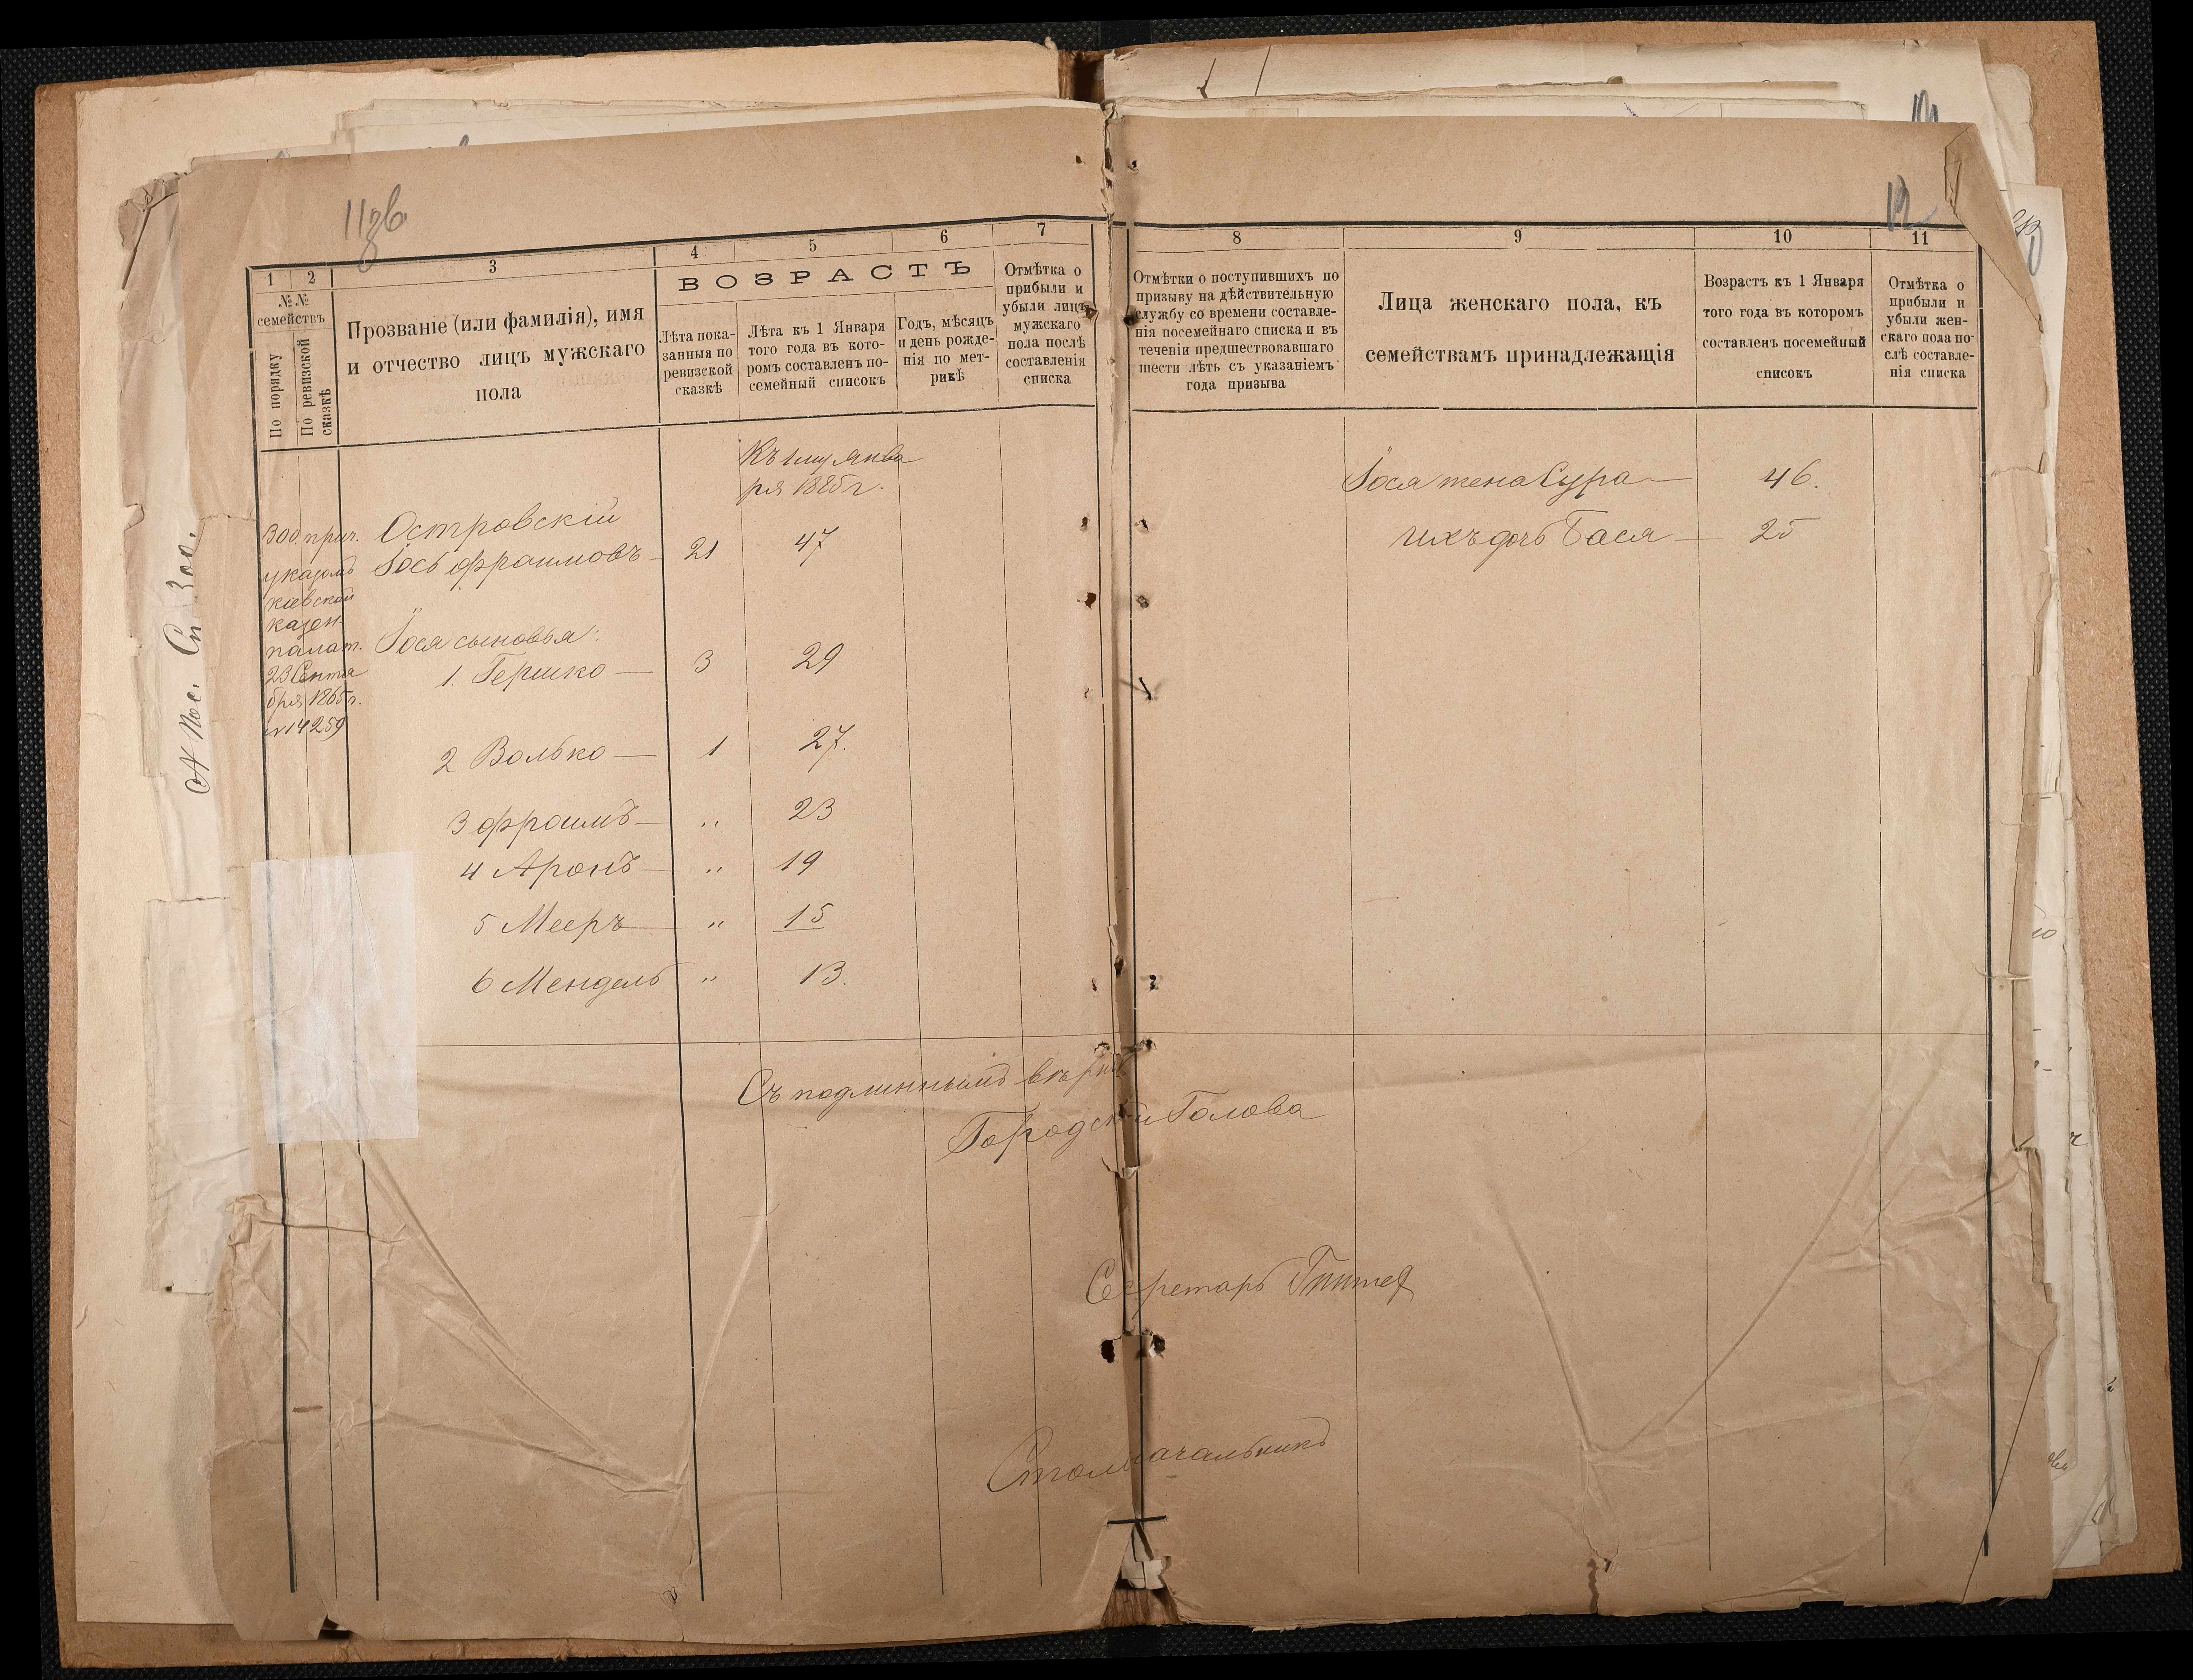 11зв
12
1 2 3 4 5 6 7
№№ семействъ
По порядку
По ревизской сказкѣ
Прозваніе (или фамилія), имя
и отчество лицъ мужскаго
пола
ВОЗРАСТЪ
Лѣта пока-
занныя по
ревизской
сказкѣ
Лѣта къ 1 Января
того года въ кото-
ромъ составленъ по-
семейный списокъ
Годъ, мѣсяцъ
и день рожде-
нія по мет-
рикѣ
Отмѣтка о
прибыли и
убыли лицъ
мужскаго
пола послѣ
составленія
списка
8 9 10 11
Отмѣтки о поступившихъ по
призыву на дѣйствительную
службу со времени составле-
нія посемейнаго списка и въ
теченіи предшествовавшаго
шести лѣтъ съ указаніемъ
года призыва
Лица женскаго пола, къ
семействамъ принадлежащія
Возрастъ къ 1 Января
того года въ которомъ
составленъ посемейный
списокъ
Отмѣтка о
прибыли и
убыли жен-
скаго пола по-
слѣ составле-
нія списка
Къ 1му Янва
ря 1885 г.
300 прич.
указомъ
кіевской
казен.
палат.
23 Сентя
бря 1865 г.
№ 14259
Островскій
Іось Фроимовъ — 21 47
Іося сыновья:
1. Гершко — 3 29
2 Волько — 1 27.
3 Фроимъ — " 23
4 Аронъ — " 19
5 Мееръ — " 15
6 Мендель " 13.
Іося жена Сура — 46.
ихъ дочь Бася — 25
Съ подлиннымъ вѣрно
Городской Голова
Секретарь
Столоначальникъ
Пос. Сп 300.